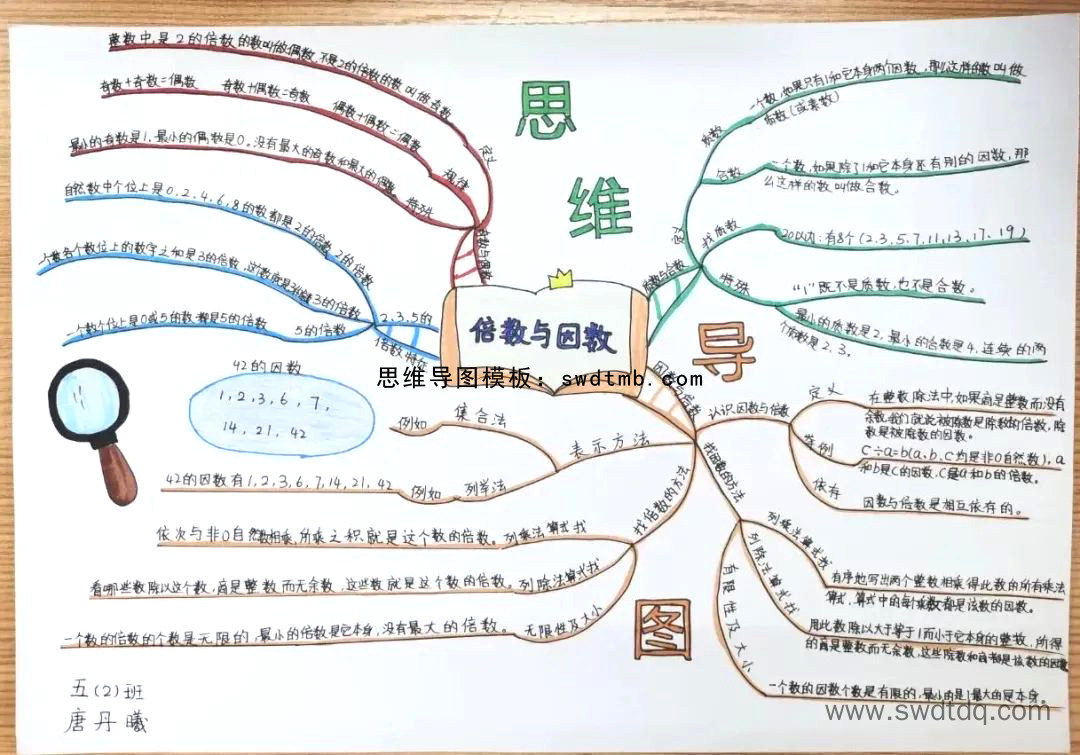 思
维
导
图
倍数与因数
思维导图模板：swdtmb.com
整数中,是2的倍数的数叫做偶数,不是2的倍数的数叫做奇数
定义
奇数+奇数=偶数 奇数+偶数=奇数 偶数+偶数=偶数
规律
最小的奇数是1,最小的偶数是0。没有最大的奇数和最大的偶数
特殊
奇数与偶数
自然数中个位上是0,2,4,6,8的数都是2的倍数 2的倍数
一个数各个数位上的数字之和是3的倍数,这个数就是 3的倍数
一个数个位上是0或5的数都是5的倍数 5的倍数
2,3,5的
倍数特征
质数与合数
定义
质数
一个数,如果只有1和它本身两个因数,那么这样的数叫做
质数(或素数)
合数
一个数,如果除了1和它本身还有别的因数,那
么这样的数叫做合数。
找质数
20以内:有8个(2,3,5,7,11,13,17,19)
特殊
“1”既不是质数,也不是合数。
最小的质数是2,最小的合数是4,连续的两
个质数是2,3。
因数与倍数
认识因数与倍数
定义
在整数除法中,如果商是整数而没有
余数,我们就说被除数是除数的倍数,除
数是被除数的因数。
举例
C÷a=b(a、b、C均是非0自然数),a
和b是C的因数,C是a和b的倍数。
依存
因数与倍数是相互依存的。
找因数的方法
列乘法算式找
有序地写出两个整数相乘得此数的所有乘法
算式,算式中的每个乘数都是该数的因数。
列除法算式找
用此数除以大于等于1而小于它本身的整数,所得
的商是整数而无余数,这些除数和商都是该数的因数
有限性及大小
一个数的因数个数是有限的,最小的是1最大的是本身。
表示方法
集合法
例如
42的因数
1,2,3,6,7,
14,21,42
列举法
例如
42的因数有1,2,3,6,7,14,21,42
找倍数的方法
依次与非0自然数相乘,所乘之积就是这个数的倍数。列乘法算式找
看哪些数除以这个数,商是整数而无余数,这些数就是这个数的倍数。列除法算式找
一个数的倍数的个数是无限的,最小的倍数是它本身,没有最大的倍数。 无限性及大小
五(2)班
唐丹曦
www.swdtdq.com